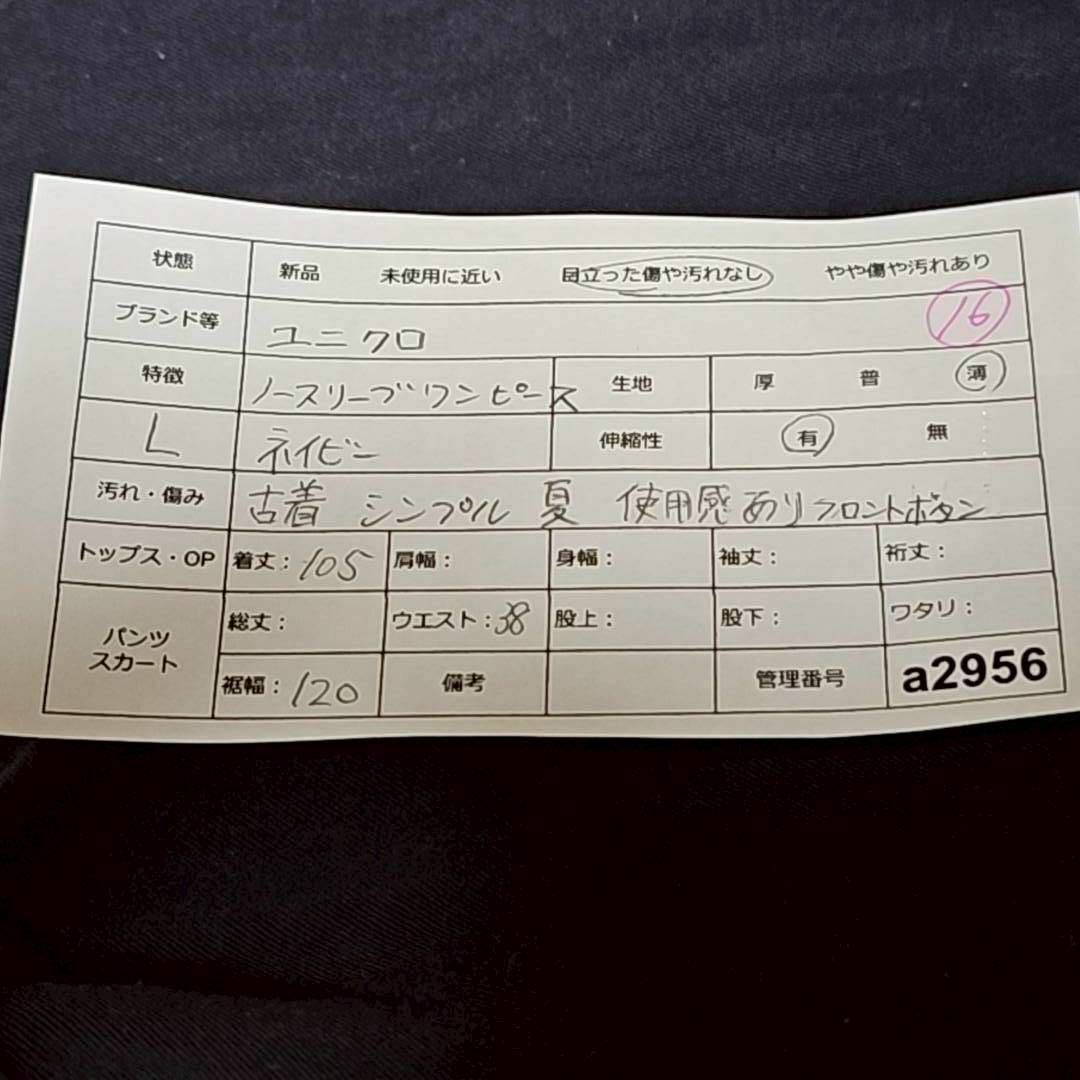 状態 新品 未使用に近い 目立った傷や汚れなし やや傷や汚れあり
ブランド等 ユニクロ 16
特徴 ノースリーブワンピース 生地 厚 普 薄
L ネイビー 伸縮性 有 無
汚れ・傷み 古着 シンプル 夏 使用感あり フロントボタン
トップス・OP 着丈：105 肩幅： 身幅： 袖丈： 裄丈：
パンツ スカート 総丈： ウエスト：38 股上： 股下： ワタリ：
裾幅：120 備考 管理番号 a2956